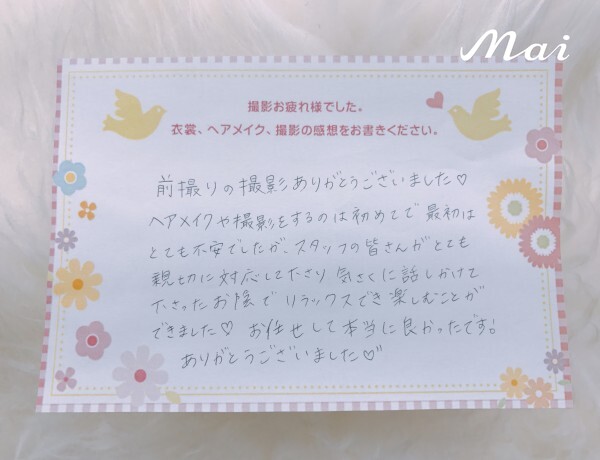 Mai
撮影お疲れ様でした。
衣裳、ヘアメイク、撮影の感想をお書きください。
前撮りの撮影ありがとうございました♡
ヘアメイクや撮影をするのは初めてで最初は
とても不安でしたが、スタッフの皆さんがとても
親切に対応して下さり気さくに話しかけて
下さったお陰でリラックスでき楽しむことが
できました♡ お任せして本当に良かったです!
ありがとうございました♡